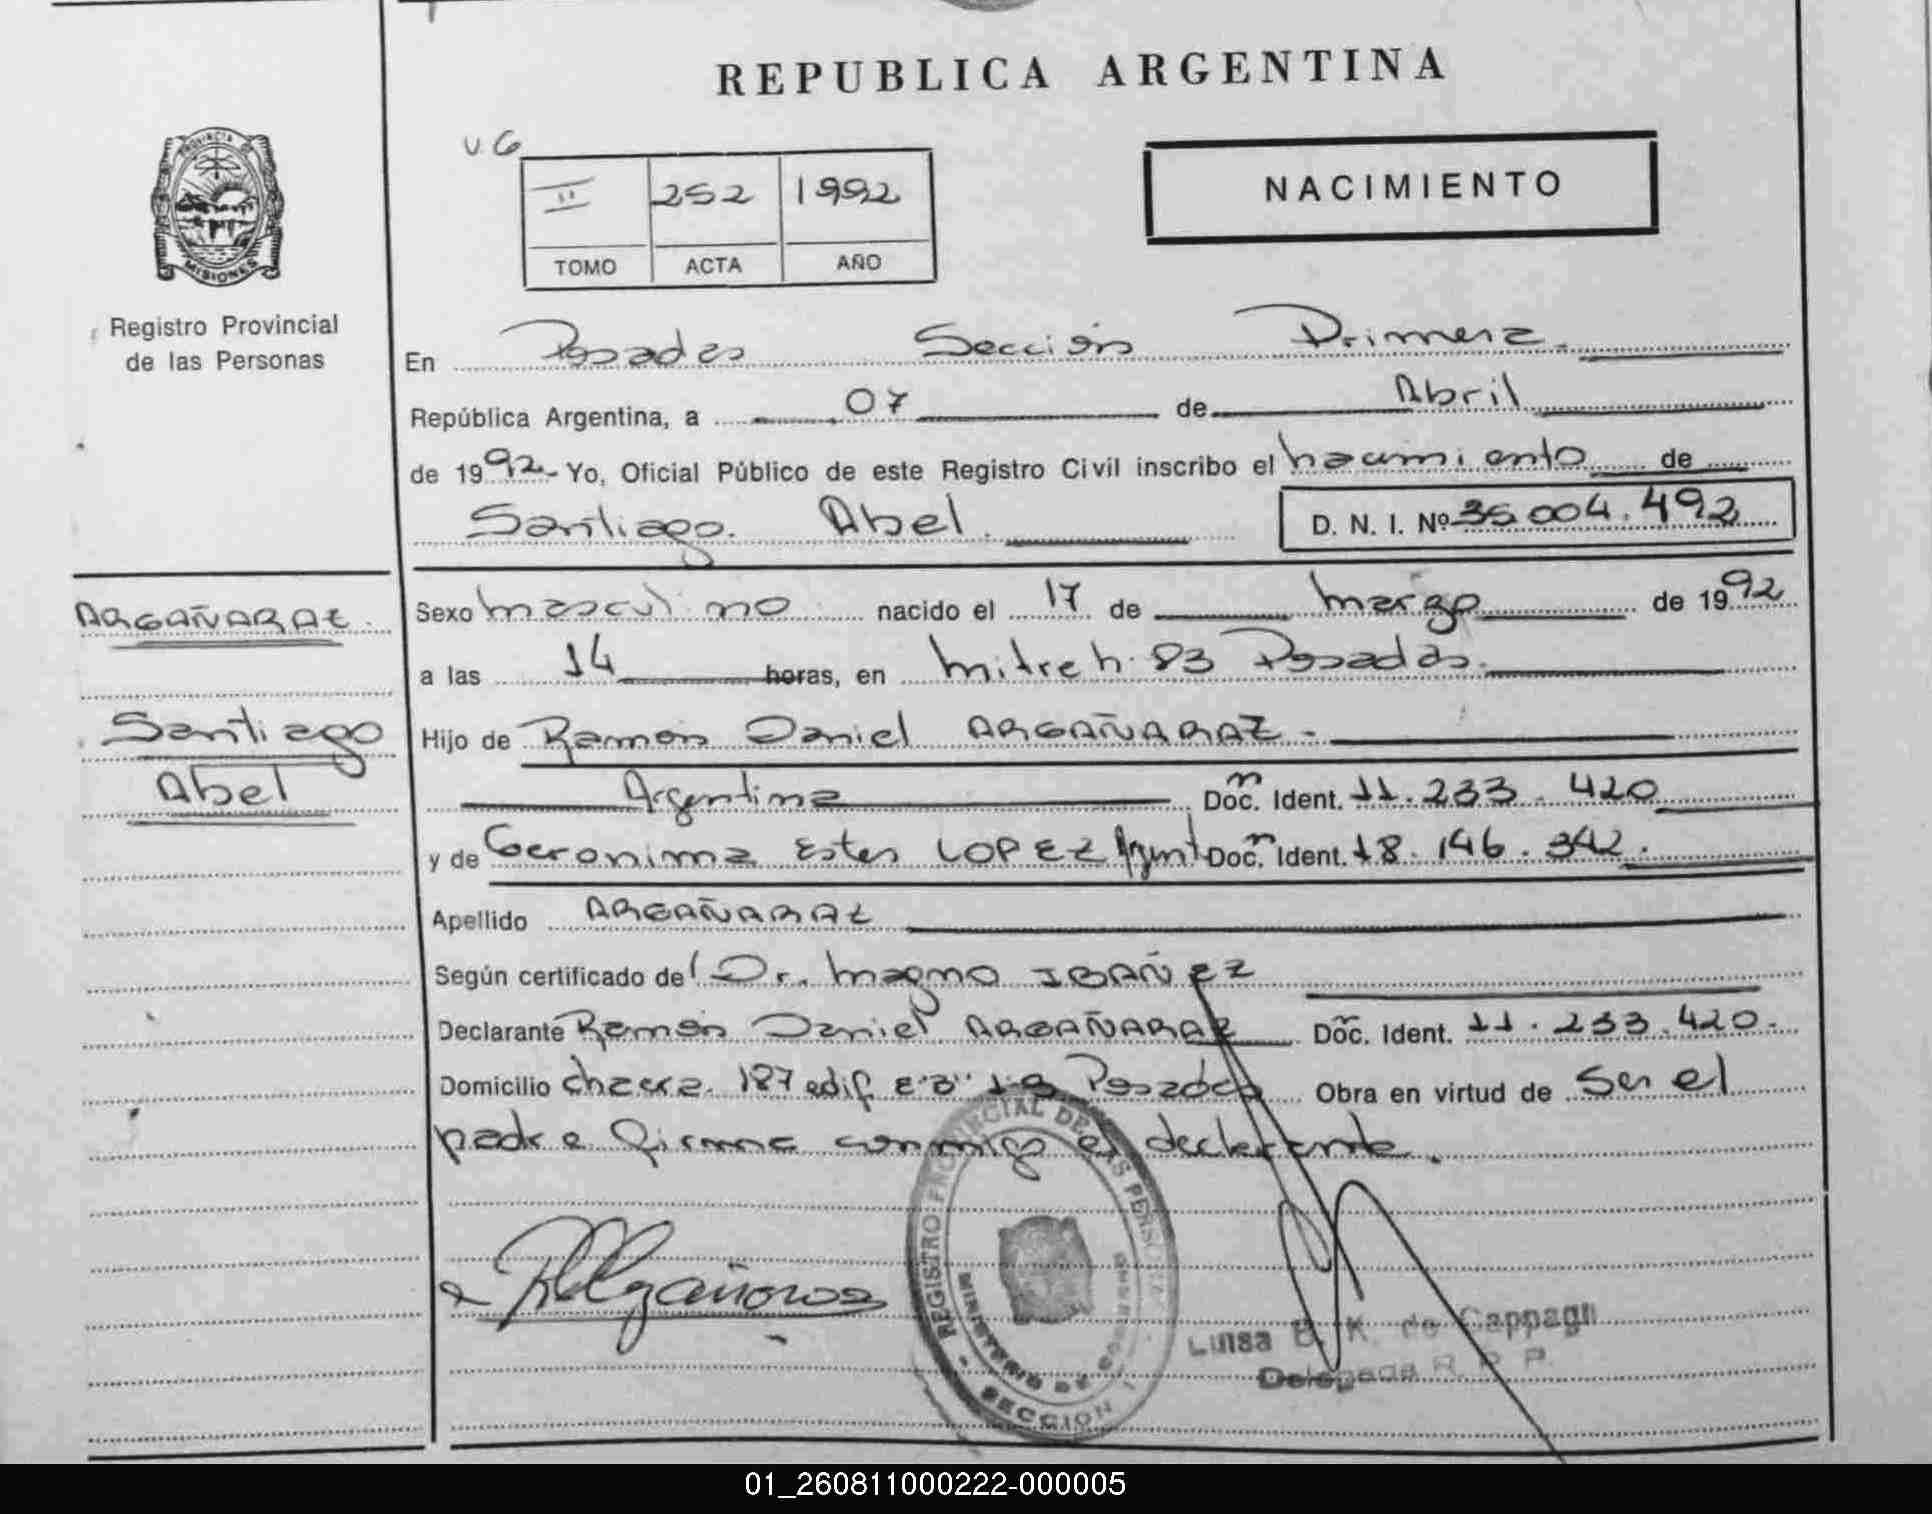 REPUBLICA ARGENTINA
PROVINCIA DE
MISIONES
Registro Provincial
de las Personas
V. G
II 252 1992
TOMO ACTA AÑO
NACIMIENTO
En Posadas Sección Primera
República Argentina, a 07 de Abril
de 1992 - Yo, Oficial Público de este Registro Civil inscribo el nacimiento de
Santiago Abel D. N. I. Nº 36.004.492
ARGAÑARAZ
Santiago
Abel
Sexo masculino nacido el 17 de marzo de 1992
a las 14 horas, en mitre h. 83 Posadas.
Hijo de Ramón Daniel ARGAÑARAZ -
Argentina Doc. Ident. 11.233.420
y de Geronima Ester LOPEZ Argent Doc. Ident. 18.146.342.
Apellido ARGAÑARAZ
Según certificado del Dr. Magno IBAÑEZ
Declarante Ramón Daniel ARGAÑARAZ Doc. Ident. 11.233.420.
Domicilio chacra. 187 edif Posadas Obra en virtud de Ser el
padre firma conmigo el declarante.
REGISTRO PROVINCIAL DE LAS PERSONAS
MINISTERIO DE GOBIERNO
SECCION
Luisa B. K. de Cappagli
Delegada R. P. P.
01_260811000222-000005